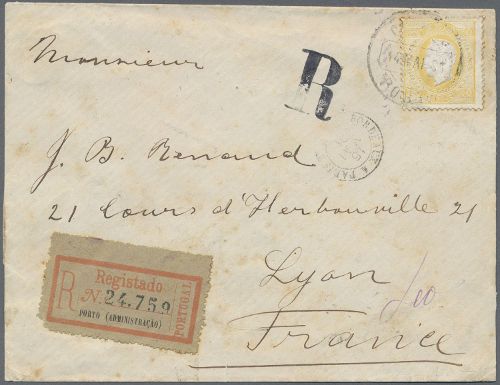 Monsieur
R
BORDEAUX A PARIS
J. B. Renaud
21 Cours d'Herbouville 21
Lyon
France
R
Registado
N. 24.759
PORTO (ADMINISTRAÇÃO)
PORTUGAL